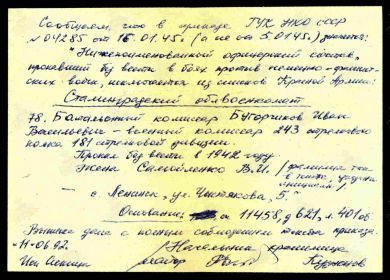 Сообщаем, что в приказе ГУК НКО СССР
№ 04285 от 16.01.45г. (а не от 5.01.45г.) значится:
"Нижепоименованный офицерский состав,
пропавший без вести в боях против немецко-фашист-
ских войск, исключается из списков Красной Армии:
Сталинградский облвоенкомат
78. Батальонный комиссар Бугорчиков Иван
Васильевич – военный комиссар 243 стрелкового
полка 181 стрелковой дивизии.
Пропал без вести в 1942 году.
Жена Самойленко В.И. /фамилия так
в книге, указаны
инициалы/
с. Ленинск, ул. Чистякова, 5."
Основание: а 11458, д 621, л. 401 об.
Выписка дана с полным соблюдением текста приказа.
11.06.92. Начальник хранилища
майор